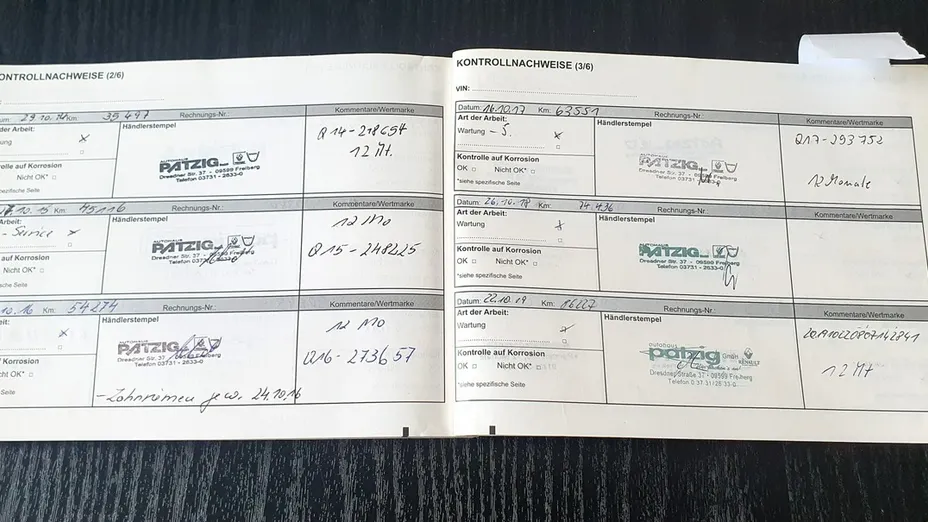 KONTROLLNACHWEISE (2/6)
29.10.14 Km: 35497 Rechnungs-Nr. Kommentare/Wertmarke
der Arbeit: Händlerstempel
x
Q14-218654
12 Mt.
AUTOHAUS
PATZIG
Dresdner Str. 37 - 09599 Freiberg
Telefon 03731 - 2633-0
Kontrolle auf Korrosion
Nicht OK*
spezifische Seite
10.15 Km: 45116 Rechnungs-Nr. Kommentare/Wertmarke
Arbeit: Händlerstempel
- Service x
12 Mo
Q15-248225
PATZIG
Dresdner Str. 37 - 09599 Freiberg
Telefon 03731 - 2633-0
Korrosion
Nicht OK*
Seite
10.16 Km: 54274 Rechnungs-Nr. Kommentare/Wertmarke
Händlerstempel
x
12 Mo
Q16-273657
PATZIG
Dresdner Str. 37 - 09599 Freiberg
Telefon 03731 - 2633-0
Korrosion
Nicht OK*
Seite
- Zahnriemen gew. 24.10.16
KONTROLLNACHWEISE (3/6)
VIN:
Datum: 16.10.17 Km: 63551 Rechnungs-Nr. Kommentare/Wertmarke
Art der Arbeit: Händlerstempel
Wartung - S. x
Q17-293752
12 Monate
PATZIG
Dresdner Str. 37 - 09599 Freiberg
Telefon 03731
Kontrolle auf Korrosion
OK Nicht OK*
*siehe spezifische Seite
Datum: 26.10.18 Km: 74.436 Rechnungs-Nr. Kommentare/Wertmarke
Art der Arbeit: Händlerstempel
Wartung x
PATZIG
Dresdner Str. 37 - 09599 Freiberg
Telefon 03731 - 2633-0
Kontrolle auf Korrosion
OK Nicht OK*
*siehe spezifische Seite
Datum: 22.10.19 Km: 86227 Rechnungs-Nr. Kommentare/Wertmarke
Art der Arbeit: Händlerstempel
Wartung x
12 Mt
autohaus
patzig GmbH
RENAULT
Dresdner Straße 37 - 09599 Freiberg
Telefon 0 37 31/26 33-0
Kontrolle auf Korrosion
OK Nicht OK*
*siehe spezifische Seite